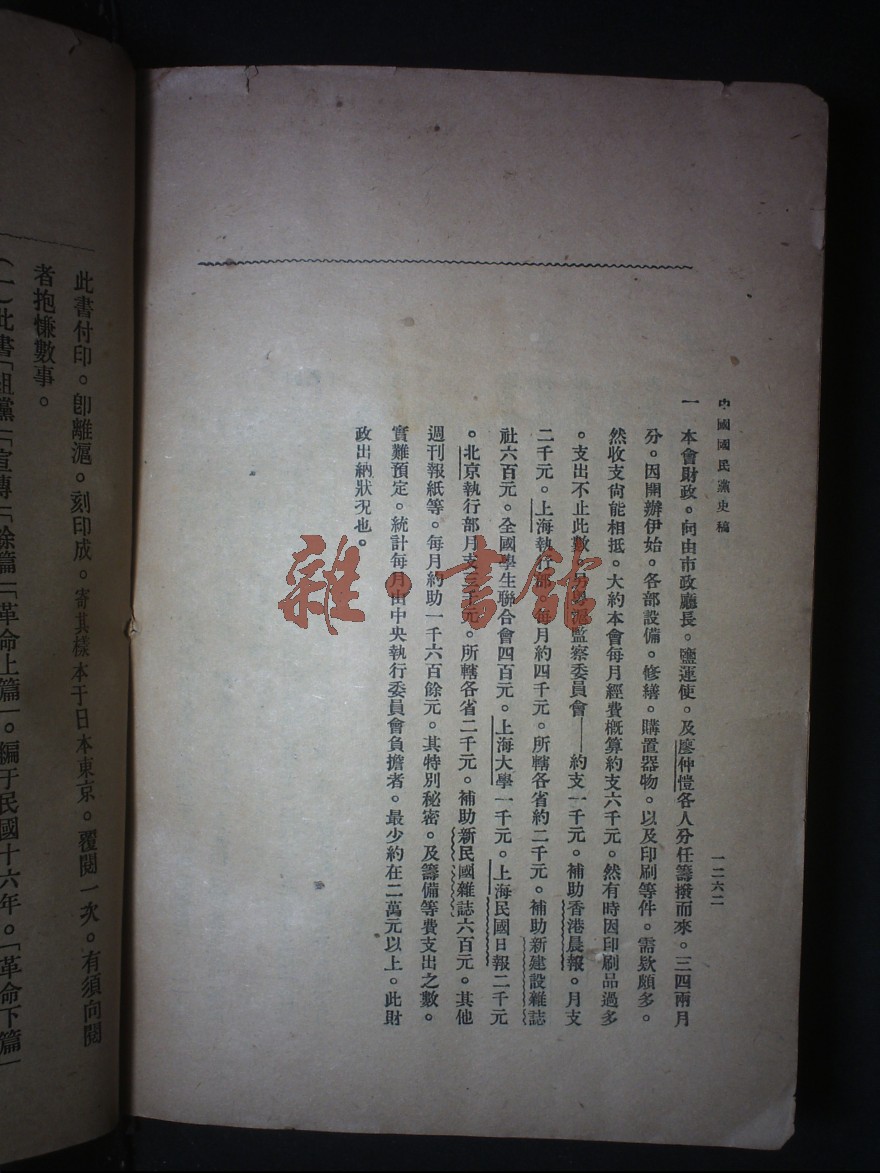 中國國民黨史稿
一二六二
一 本會財政。向由市政廳長。鹽運使。及廖仲愷各人分任籌撥而來。三四兩月
分。因開辦伊始。各部設備。修繕。購置器物。以及印刷等件。需欵頗多。
然收支尙能相抵。大約本會每月經費概算約支六千元。然有時因印刷品過多
。支出不止此數。另粵滬監察委員會——約支一千元。補助香港晨報。月支
二千元。上海執行部。每月約四千元。所轄各省約二千元。補助新建設雜誌
社六百元。全國學生聯合會四百元。上海大學一千元。上海民國日報二千元
。北京執行部月支三千元。所轄各省二千元。補助新民國雜誌六百元。其他
週刊報紙等。每月約助一千六百餘元。其特別秘密。及籌備等費支出之數。
實難預定。統計每月由中央執行委員會負擔者。最少約在二萬元以上。此財
政出納狀况也。
雜·書館
此書付印。卽離滬。刻印成。寄其樣本于日本東京。覆閱一次。有須向閱
者抱慊數事。
(一)此書「組黨」「宣傳」「餘篇」「革命上篇」。編于民國十六年。「革命下篇」